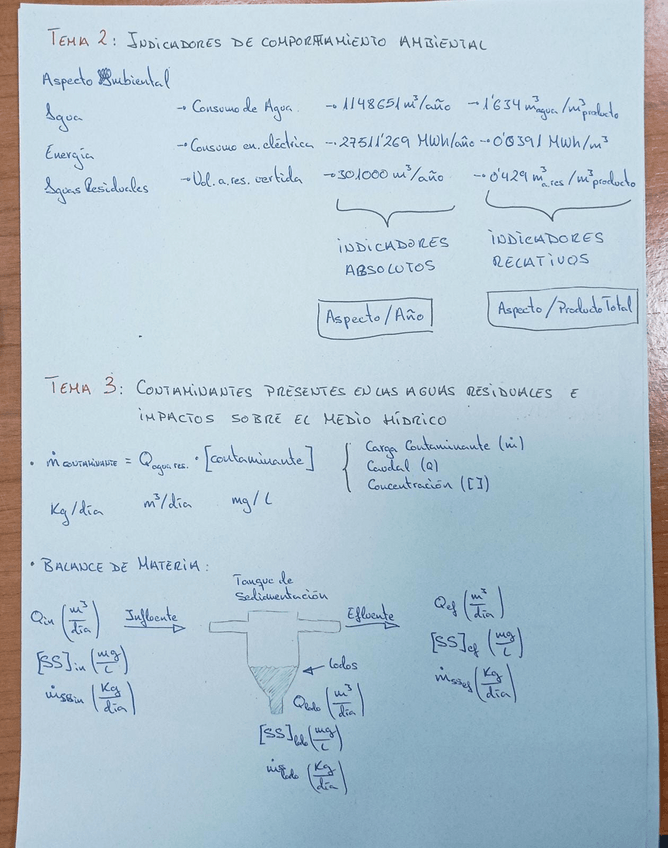 TEMA 2: INDICADORES DE COMPORTAMIENTO AMBIENTAL
Aspecto Ambiental
Agua → Consumo de Agua → 1148651 m³/año → 1'634 m³agua/m³producto
Energía → Consumo en. eléctrica → 27511'269 MWh/año → 0'0391 MWh/m³
Aguas Residuales → Vol. a. res. vertida → 301000 m³/año → 0'429 m³a.res/m³producto
INDICADORES ABSOLUTOS
INDICADORES RELATIVOS
Aspecto/Año
Aspecto/Producto Total
TEMA 3: CONTAMINANTES PRESENTES EN LAS AGUAS RESIDUALES E
IMPACTOS SOBRE EL MEDIO HÍDRICO
• ṁ CONTAMINANTE = Q agua res. · [contaminante]
Carga Contaminante (ṁ)
Caudal (Q)
Concentración ([])
Kg/día m³/día mg/L
• BALANCE DE MATERIA:
Tanque de
Sedimentación
Qin (m³/día)
Influente
[SS]in (mg/L)
ṁssin (Kg/día)
Efluente
Qef (m³/día)
[SS]ef (mg/L)
ṁssef (Kg/día)
← lodos
Qlodo (m³/día)
[SS]lodo (mg/L)
ṁslodo (Kg/día)